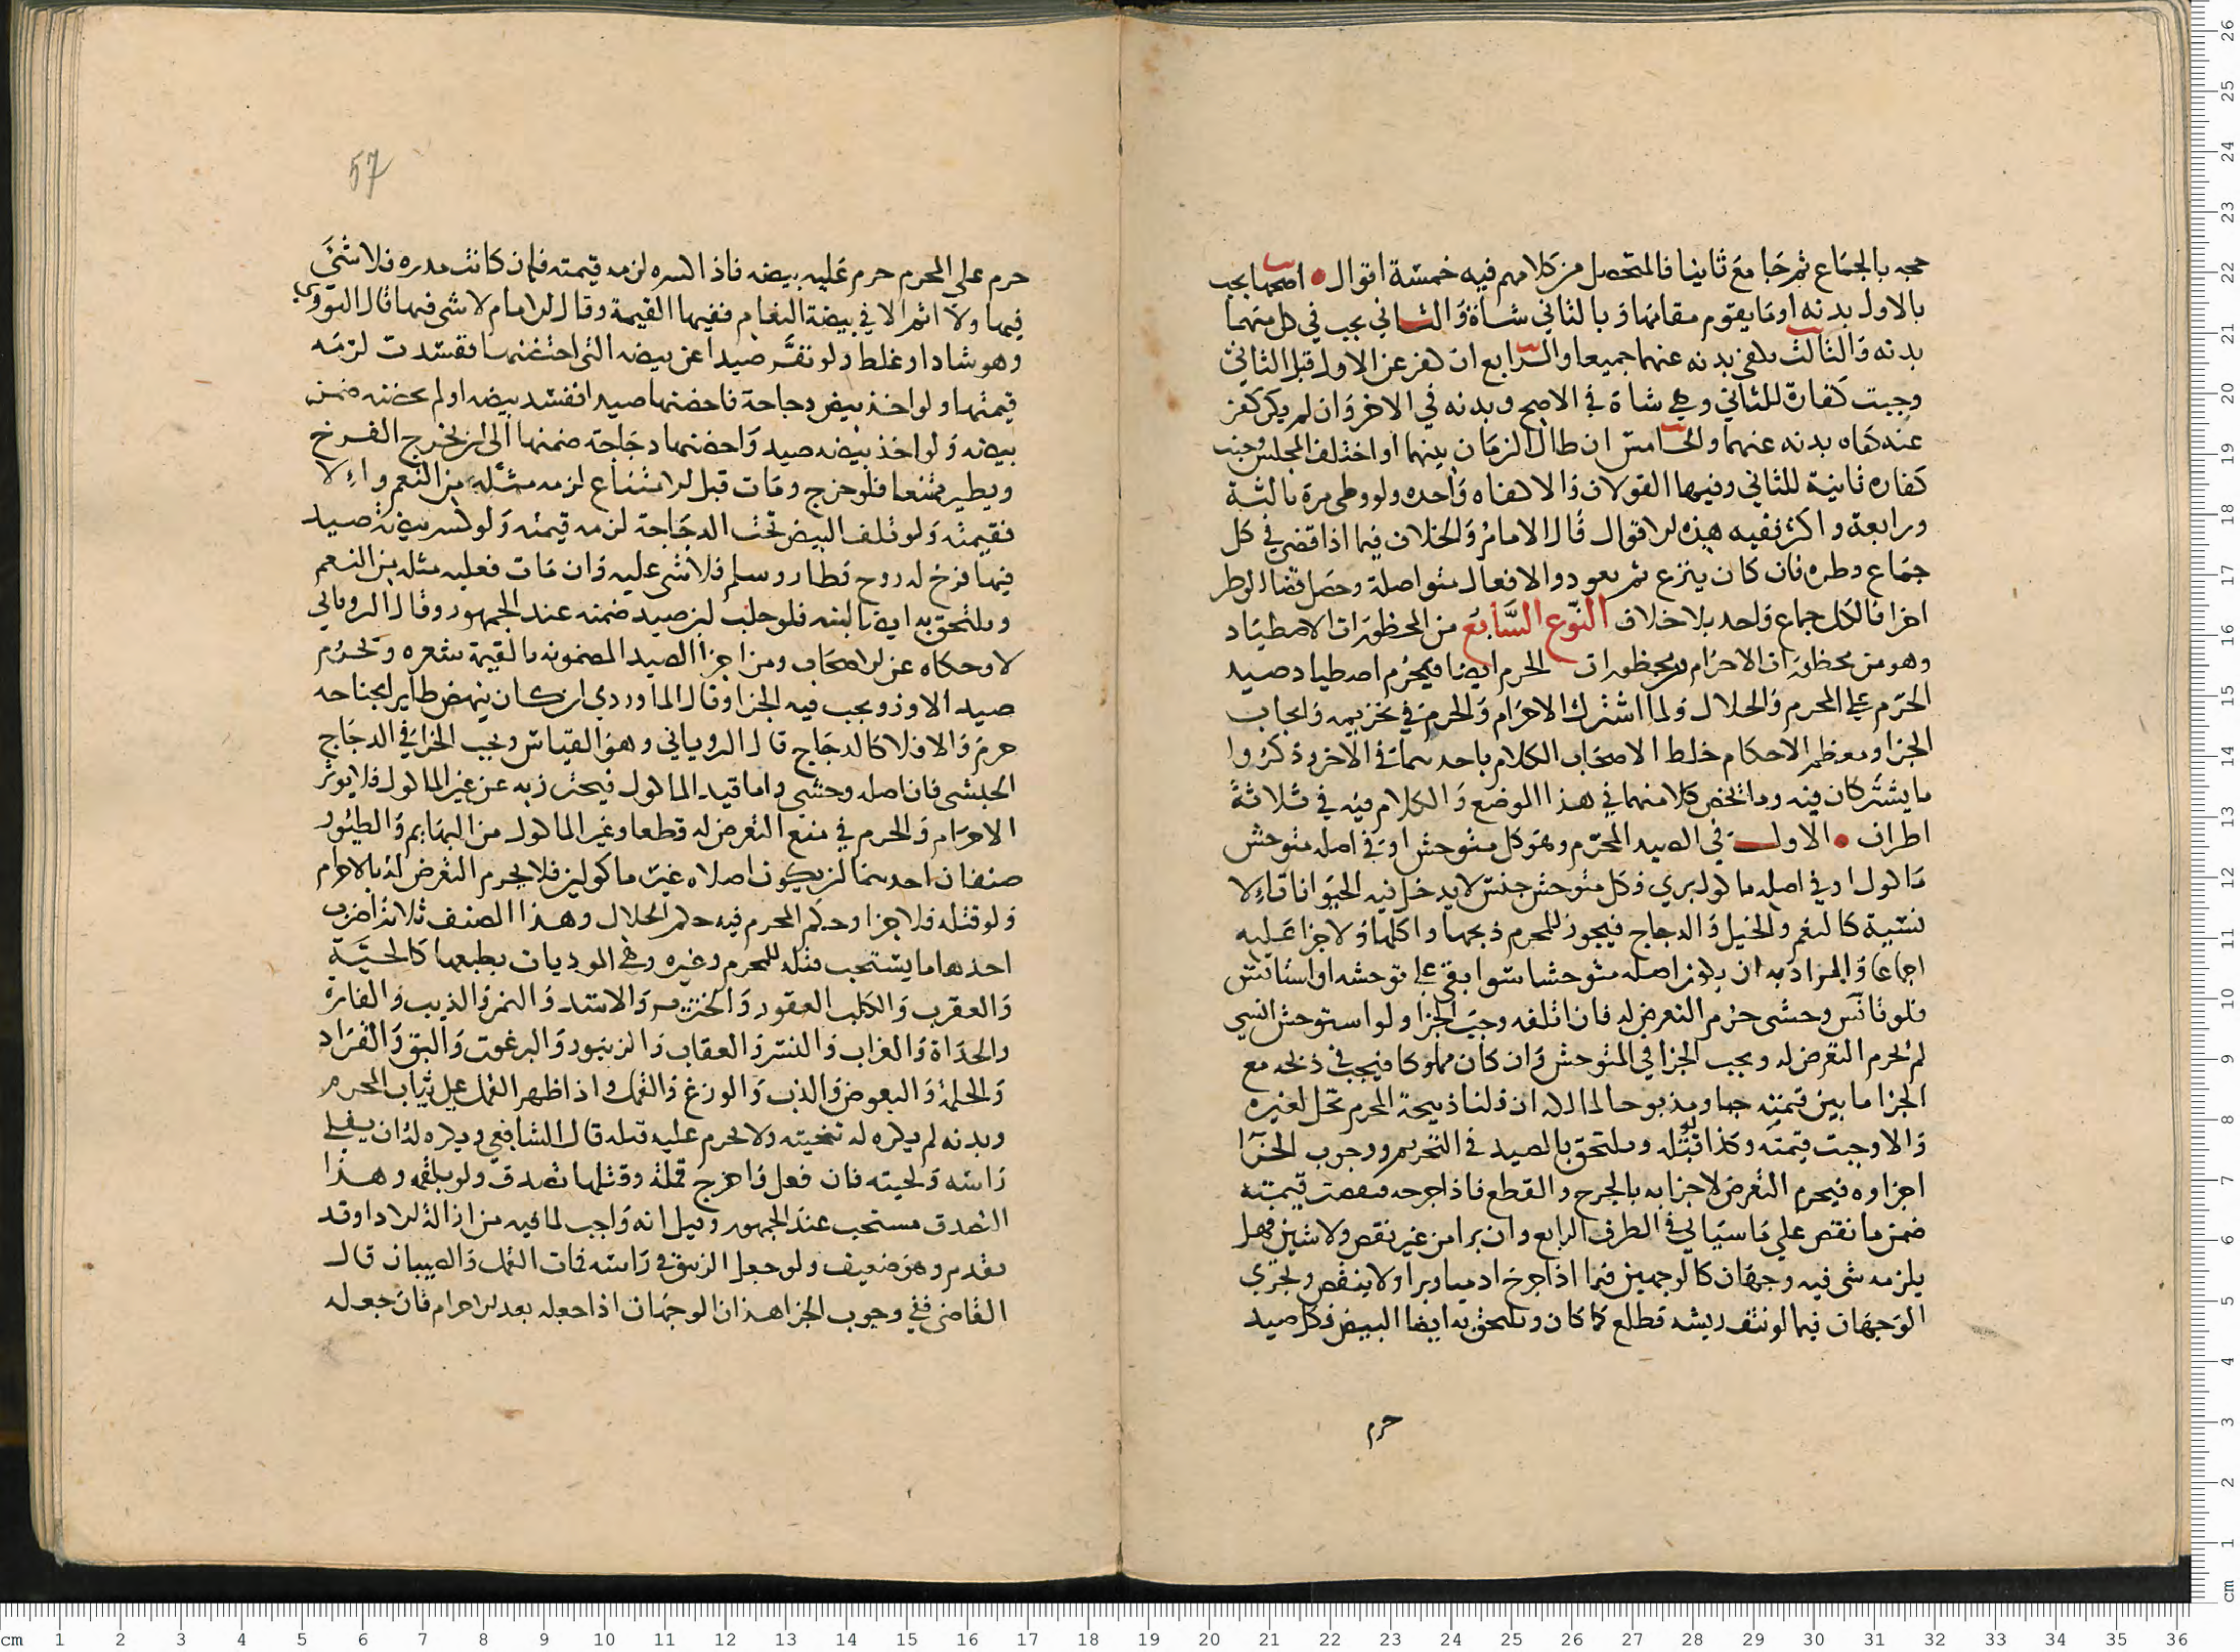 حجه بالجماع ثم جامع ثانيا فالمتحصل من كلامهم فيه خمسة اقوال اصحها يجب
بالاول بدنه او ما يقوم مقامها وبالثاني شاة والثاني يجب في كل منهما
بدنه والثالث يكفي بدنه عنهما جميعا والرابع ان كفر عن الاول قبل الثاني
وجبت كفارة للثاني وهي شاة في الاصح وبدنه في الاخر وان لم يكن كفر
عنه كفاه بدنه عنهما والخامس ان طال الزمان بينهما او اختلف المجلس وجبت
كفاره ثانية للثاني وفيها القولان والا كفاه واحده ولو وطى مرة ثالثة
ورابعة واكثر ففيه هذه الاقوال قال الامام والخلاف فيما اذا قضى في كل
جماع وطره فان كان ينزع ثم يعود والافعال متواصلة وحصل قضا الوطر
اخرا فالكل جماع واحد بلا خلاف النوع السابع من المحظورات الاصطياد
وهو من محظورات الاحرام ومن محظورات الحرم ايضا فيحرم اصطياد صيد
الحرم على المحرم والحلال ولما اشترك الاحرام والحرم في تحريمه وايجاب
الجزا ومعظم الاحكام خلط الاصحاب الكلام باحدهما في الاخر وذكروا
ما يشتركان فيه وما يخص كلا منهما في هذا الموضع والكلام فيه في ثلاثة
اطراف الاول في الصيد المحرم وهو كل متوحش او في اصله متوحش
ماكول او في اصله ماكول بري فكل متوحش جنس لا يدخل فيه الحيوانات الا
نسية كالنعم والخيل والدجاج فيجوز للمحرم ذبحها واكلها ولا جزا عليه
اجماعا والمراد به ان يكون اصله متوحشا سوا بقي على توحشه او استانس
فلو تانس وحشى حرم التعرض له فان اتلفه وجب الجزا ولو استوحش انسي
لم يحرم التعرض له ويجب الجزا في المتوحش وان كان مملوكا فيجب في ذبحه مع
الجزا ما بين قيمته حيا ومذبوحا لمالكه ان قلنا ذبيحة المحرم تحل لغيره
والا وجبت قيمته وكذا قبتله ويلتحق بالصيد في التحريم ووجوب الجزا
اجزاوه فيحرم التعرض لاجزايه بالجرح والقطع فاذا جرحه فنقصت قيمته
ضمن ما نقص على ما سياتي في الطرف الرابع وان برا من غير نقص ولا شين فهل
يلزمه شى فيه وجهان كالوجهين فيما اذا جرح ادميا وبرا ولا ينقص ويجري
الوجهان فيما لو نتف ريشه فطلع كما كان ويلتحق به ايضا البيض فكل صيد
حرم
57
حرم على المحرم حرم عليه بيضه فاذا كسره لزمه قيمته فان كانت مدره فلا شئ
فيها ولا اثم الا في بيضة النعام ففيها القيمة وقال الامام لا شى فيها قال النووي
وهو شاذ او غلط ولو نفر صيدا عن بيضه التي احتضنها ففسدت لزمه
قيمتها ولو اخذ بيض دجاحة فاحضنها صيدا ففسد بيضه او لم يحضنه ضمن
بيضه ولو اخذ بيضه صيد واحضنها دجاجة ضمنها الى ان يخرج الفرخ
ويطير ممتنعا فلو خرج ومات قبل الامتناع لزمه مثله من النعم والا
فقيمته ولو تلف البيض تحت الدجاجة لزمه قيمته ولو كسر بيضة صيد
فيها فرخ له روح فطار وسلم فلا شى عليه وان مات فعليه مثله من النعم
ويلتحق به ايضا لبنه فلو حلب لبن صيد ضمنه عند الجمهور وقال الروياني
لا وحكاه عن الاصحاب ومن اجزا الصيد المضمونه بالقيمة شعره ويحرم
صيد الاوز ويجب فيه الجزا وقال الماوردي ان كان ينهض طايرا بجناحه
حرم والا فلا كالدجاج قال الروياني وهو القياس ويجب الجزا في الدجاج
الحبشى فان اصله وحشي واما قيد الماكول فيحترز به عن غير الماكول فلا يوثر
الاحرام والحرم في منع التعرض له قطعا وغير الماكول من البهايم والطيور
صنفان احدهما لن يكون اصلاه غير ماكولين فلا يحرم التعرض له بالاحرام
ولو قتله فلا جزا وحكم المحرم فيه حكم الحلال وهذا الصنف ثلاثة اضرب
احدها ما يستحب قتله للمحرم وغيره وهي الموذيات بطبعها كالحية
والعقرب والكلب العقور والخنزير والاسد والنمر والذيب والفارة
والحداة والغراب والنسر والعقاب والزنبور والبرغوث والبق والقراد
والحلمة والبعوض والذب والوزغ والقمل واذا ظهر القمل على ثياب المحرم
وبدنه لم يكره له تنحيته ولا يحرم عليه قتله قال الشافعي ويكره له ان يفلي
راسه ولحيته فان فعل واخرج قملة وقتلها تصدق ولو بلقمه وهذا
التصدق مستحب عند الجمهور وقيل انه واجب لما فيه من ازالة الاذا وقد
تقدم وهو ضعيف ولو جعل الزيبق في راسه فمات القمل والصيبان قال
القاضى ففي وجوب الجزا هذان الوجهان اذا جعله بعد الاحرام فان جعله